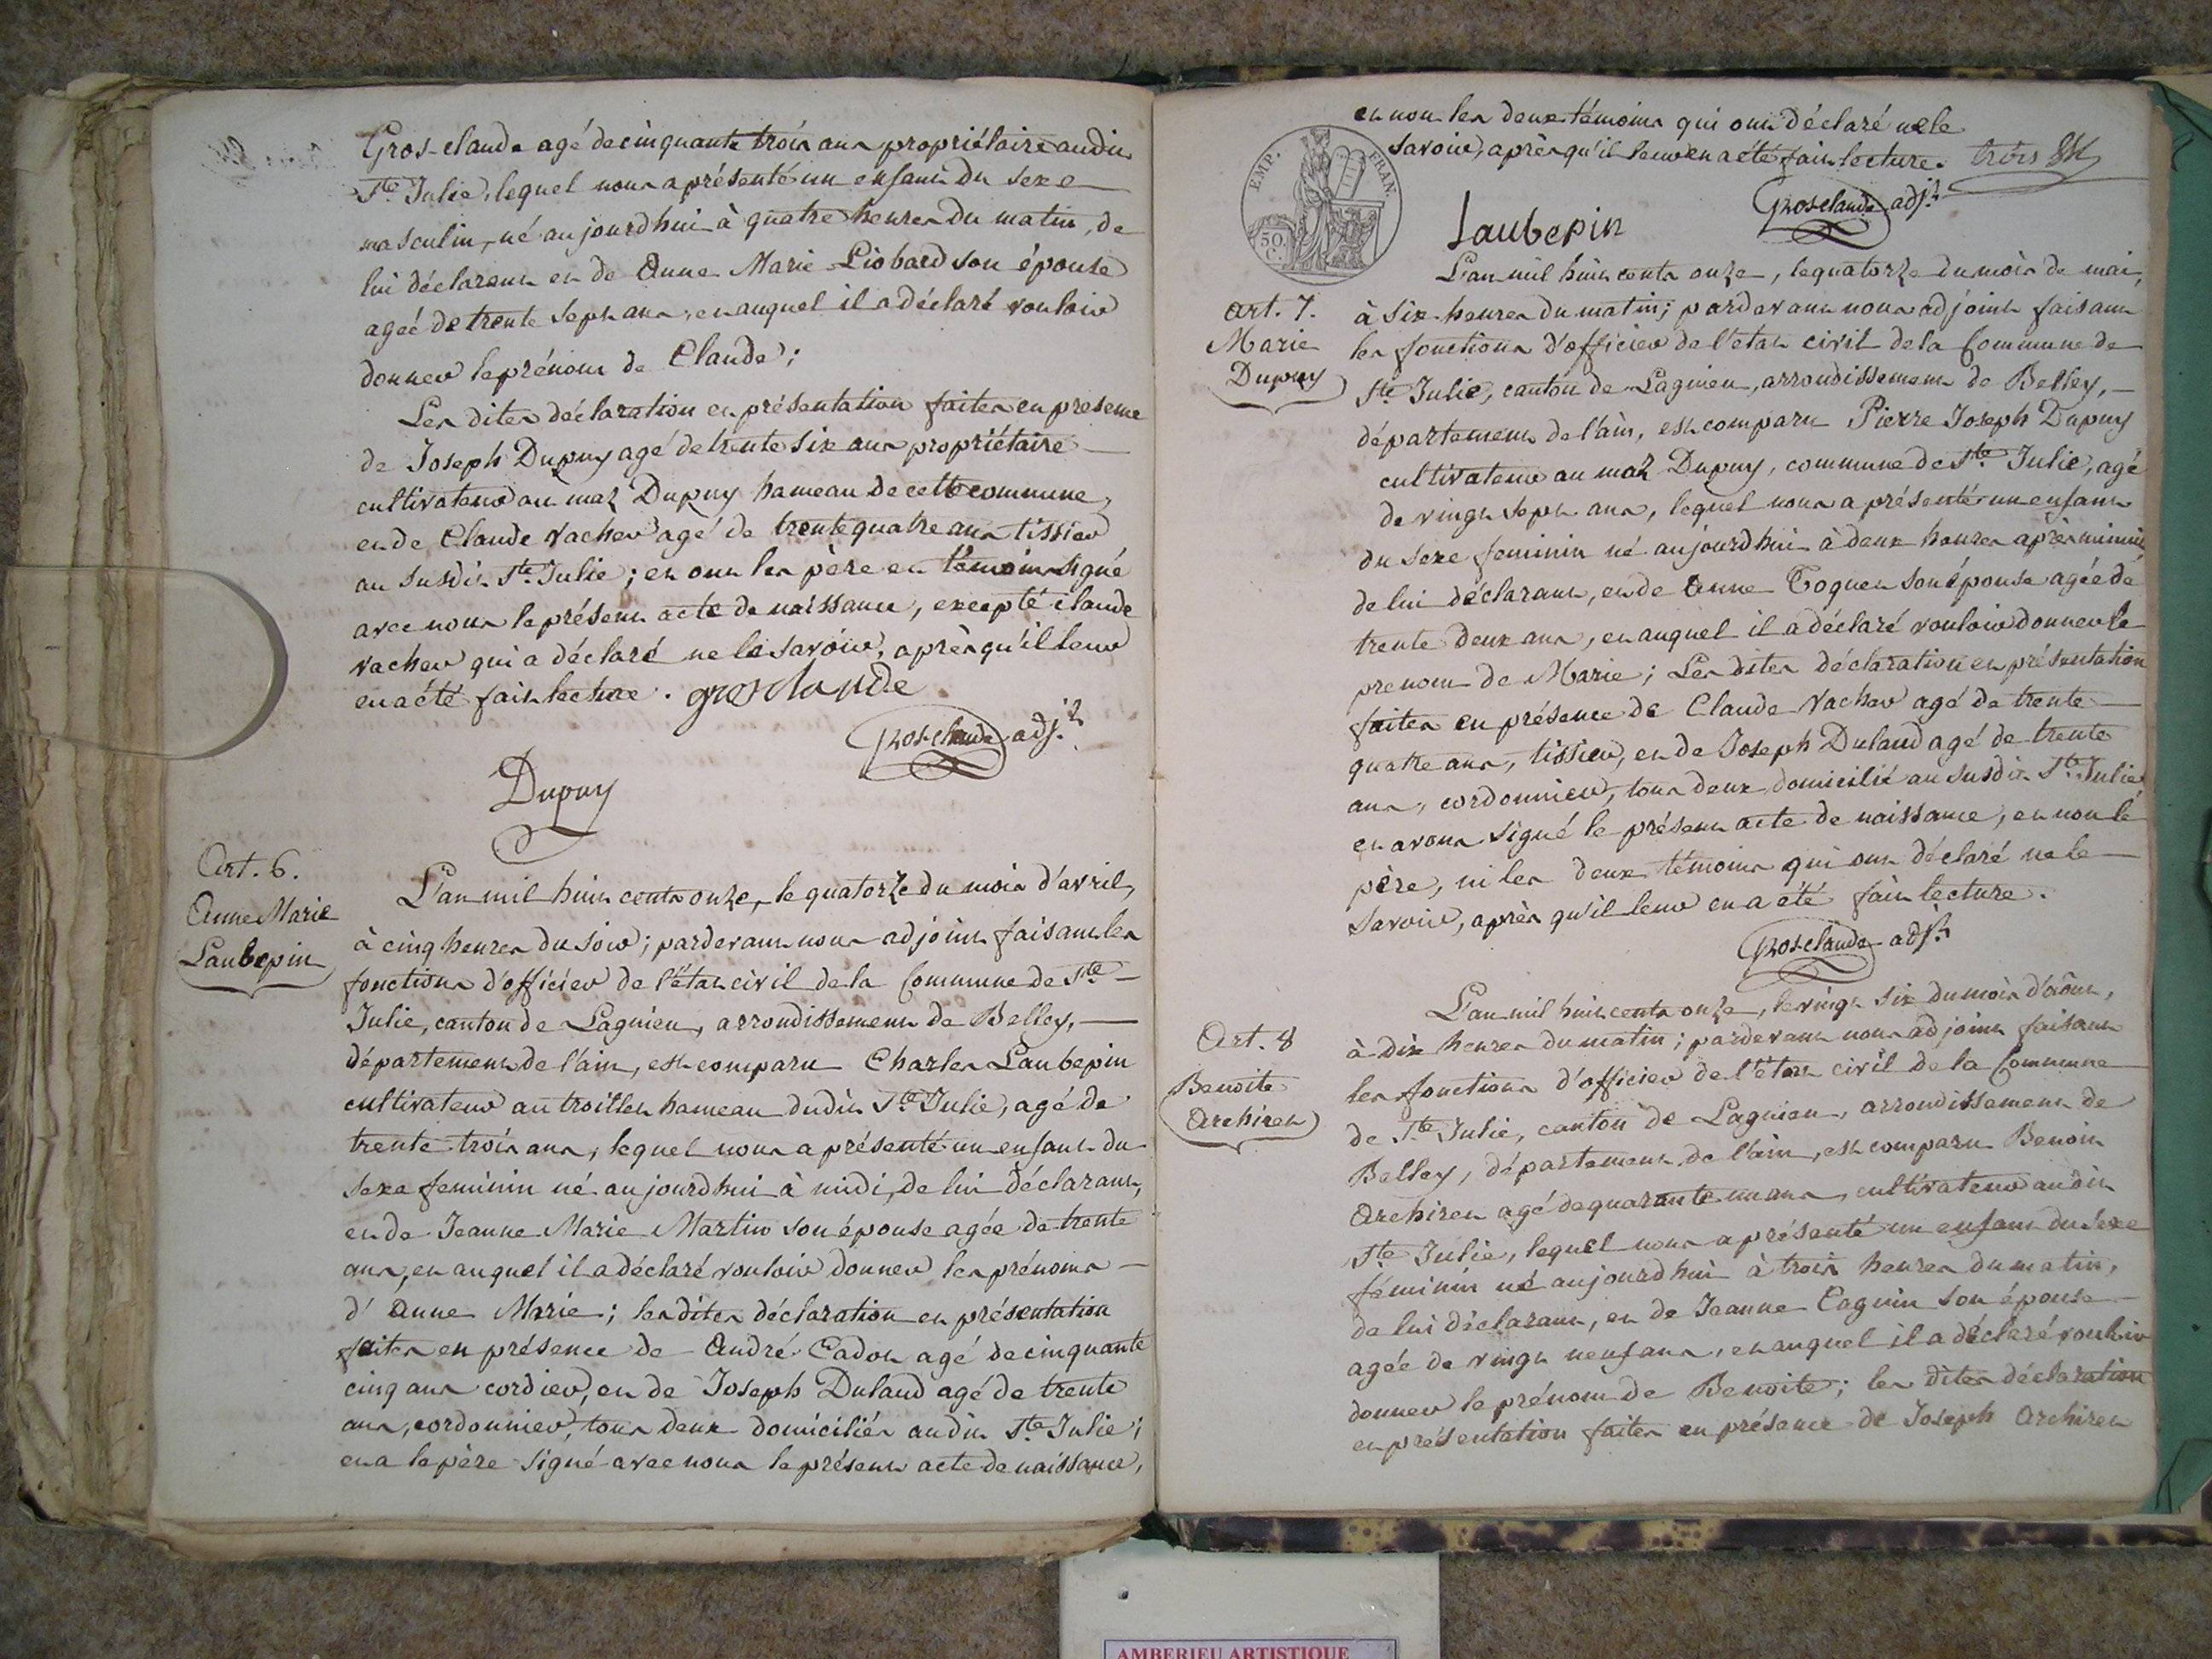 Gros-claude agé de cinquante trois ans propriétaire audit
Ste. Julie, lequel nous a présenté un enfant du sexe
masculin, né aujourdhui à quatre heures du matin, de
lui déclarant et de Anne Marie Liobard son épouse
ageé de trente sept ans, et auquel il a déclaré vouloir
donner le prénom de Claude;
Les dites déclaration et présentation faites en presence
de Joseph Dupuy agé de trente six ans propriétaire
cultivateur au maz Dupuy hameau de cette commune,
et de Claude Vacher agé de trente quatre ans tissier
au susdit Ste. Julie; et ont les père et témoins signé
avec nous le présent acte de naissance, excepté claude
vacher qui a déclaré ne le savoir, après qu'il leur
en a été fait lecture. grosclaude
Grosclaude adj.t
Dupuy
Art. 6.
Anne Marie
Laubepin
L'an mil huit cents onze, le quatorze du mois d'avril,
à cinq heures du soir; pardevant nous adjoint faisant les
fonctions d'officier de l'état civil de la Commune de Ste.
Julie, canton de Lagnieu, arrondissement de Belley,
département de l'ain, est comparu Charles Laubepin
cultivateur au troillet hameau dudit Ste. Julie, agé de
trente trois ans, lequel nous a présenté un enfant du
sexe feminin né aujourdhui à midi, de lui déclarant,
et de Jeanne Marie Martin son épouse agée de trente
ans, et auquel il a déclaré vouloir donner les prénoms
d'Anne Marie; les dites déclaration et présentation
faites en présence de André Cadot agé de cinquante
cinq ans cordier, et de Joseph Dulaud agé de trente
ans, cordonnier, tous deux domiciliés audit Ste. Julie;
et a le père signé avec nous le présent acte de naissance,
et non les deux témoins qui ont déclaré ne le
savoir, après qu'il leur en a été fait lecture. trois
EMP. FRAN.
50 C.
Laubepin
Grosclaude adj.t
Art. 7.
Marie
Dupuy
L'an mil huit cents onze, le quatorze du mois de mai,
à six heures du matin; pardevant nous adjoint faisant
les fonctions d'officier de l'etat civil de la Commune de
Ste. Julie, canton de Lagnieu, arrondissement de Belley,
département de l'ain, est comparu Pierre Joseph Dupuy
cultivateur au maz Dupuy, commune de Ste. Julie, agé
de vingt sept ans, lequel nous a présenté un enfant
du sexe feminin né aujourdhui à deux heures après minuit
de lui déclarant, et de Anne Coquet son épouse agée de
trente deux ans, et auquel il a déclaré vouloir donner le
prenom de Marie; Les dites déclaration et présentation
faites en présence de Claude Vacher agé de trente
quatre ans, tissier, et de Joseph Dulaud agé de trente
ans, cordonnier, tous deux domicilié au susdit Ste. Julie
et avons signé le présent acte de naissance, et non le
père, ni les deux témoins qui ont déclaré ne le
savoir, après qu'il leur en a été fait lecture.
Grosclaude adj.t
Art. 8
Benoite
Archiret
L'an mil huit cents onze, le vingt six du mois d'aôut,
à dix heures du matin; pardevant nous adjoint faisant
les fonctions d'officier de l'état civil de la Commune
de Ste. Julie, canton de Lagnieu, arrondissement de
Belley, département de l'ain, est comparu Benoit
Archiret agé de quarante un ans, cultivateur audit
Ste. Julie, lequel nous a présenté un enfant du sexe
féminin né aujourdhui à trois heures du matin,
de lui déclarant, et de Jeanne Caguin son épouse
agée de vingt neuf ans, et auquel il a déclaré vouloir
donner le prénom de Benoite; les dites déclaration
et présentation faites en présence de Joseph Archiret
AMBERIEU ARTISTIQUE